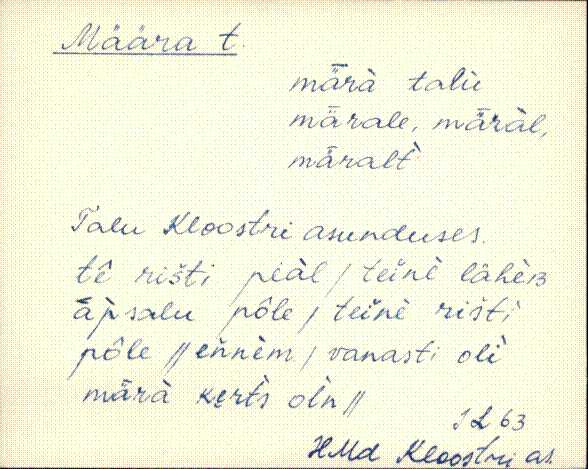 Määra t.
mǟrà talu̇̀
mǟrale, mǟràl,
mǟralt̀
Talu Kloostri asunduses.
tê rišti piàl / teìnè lähèʙ
àpsalu pôle / teìnè rišti
pôle // eǹnèm / vanasti olì
mǟrà kɛrt̀s olǹ //
J L 63
HMd Kloostri as.